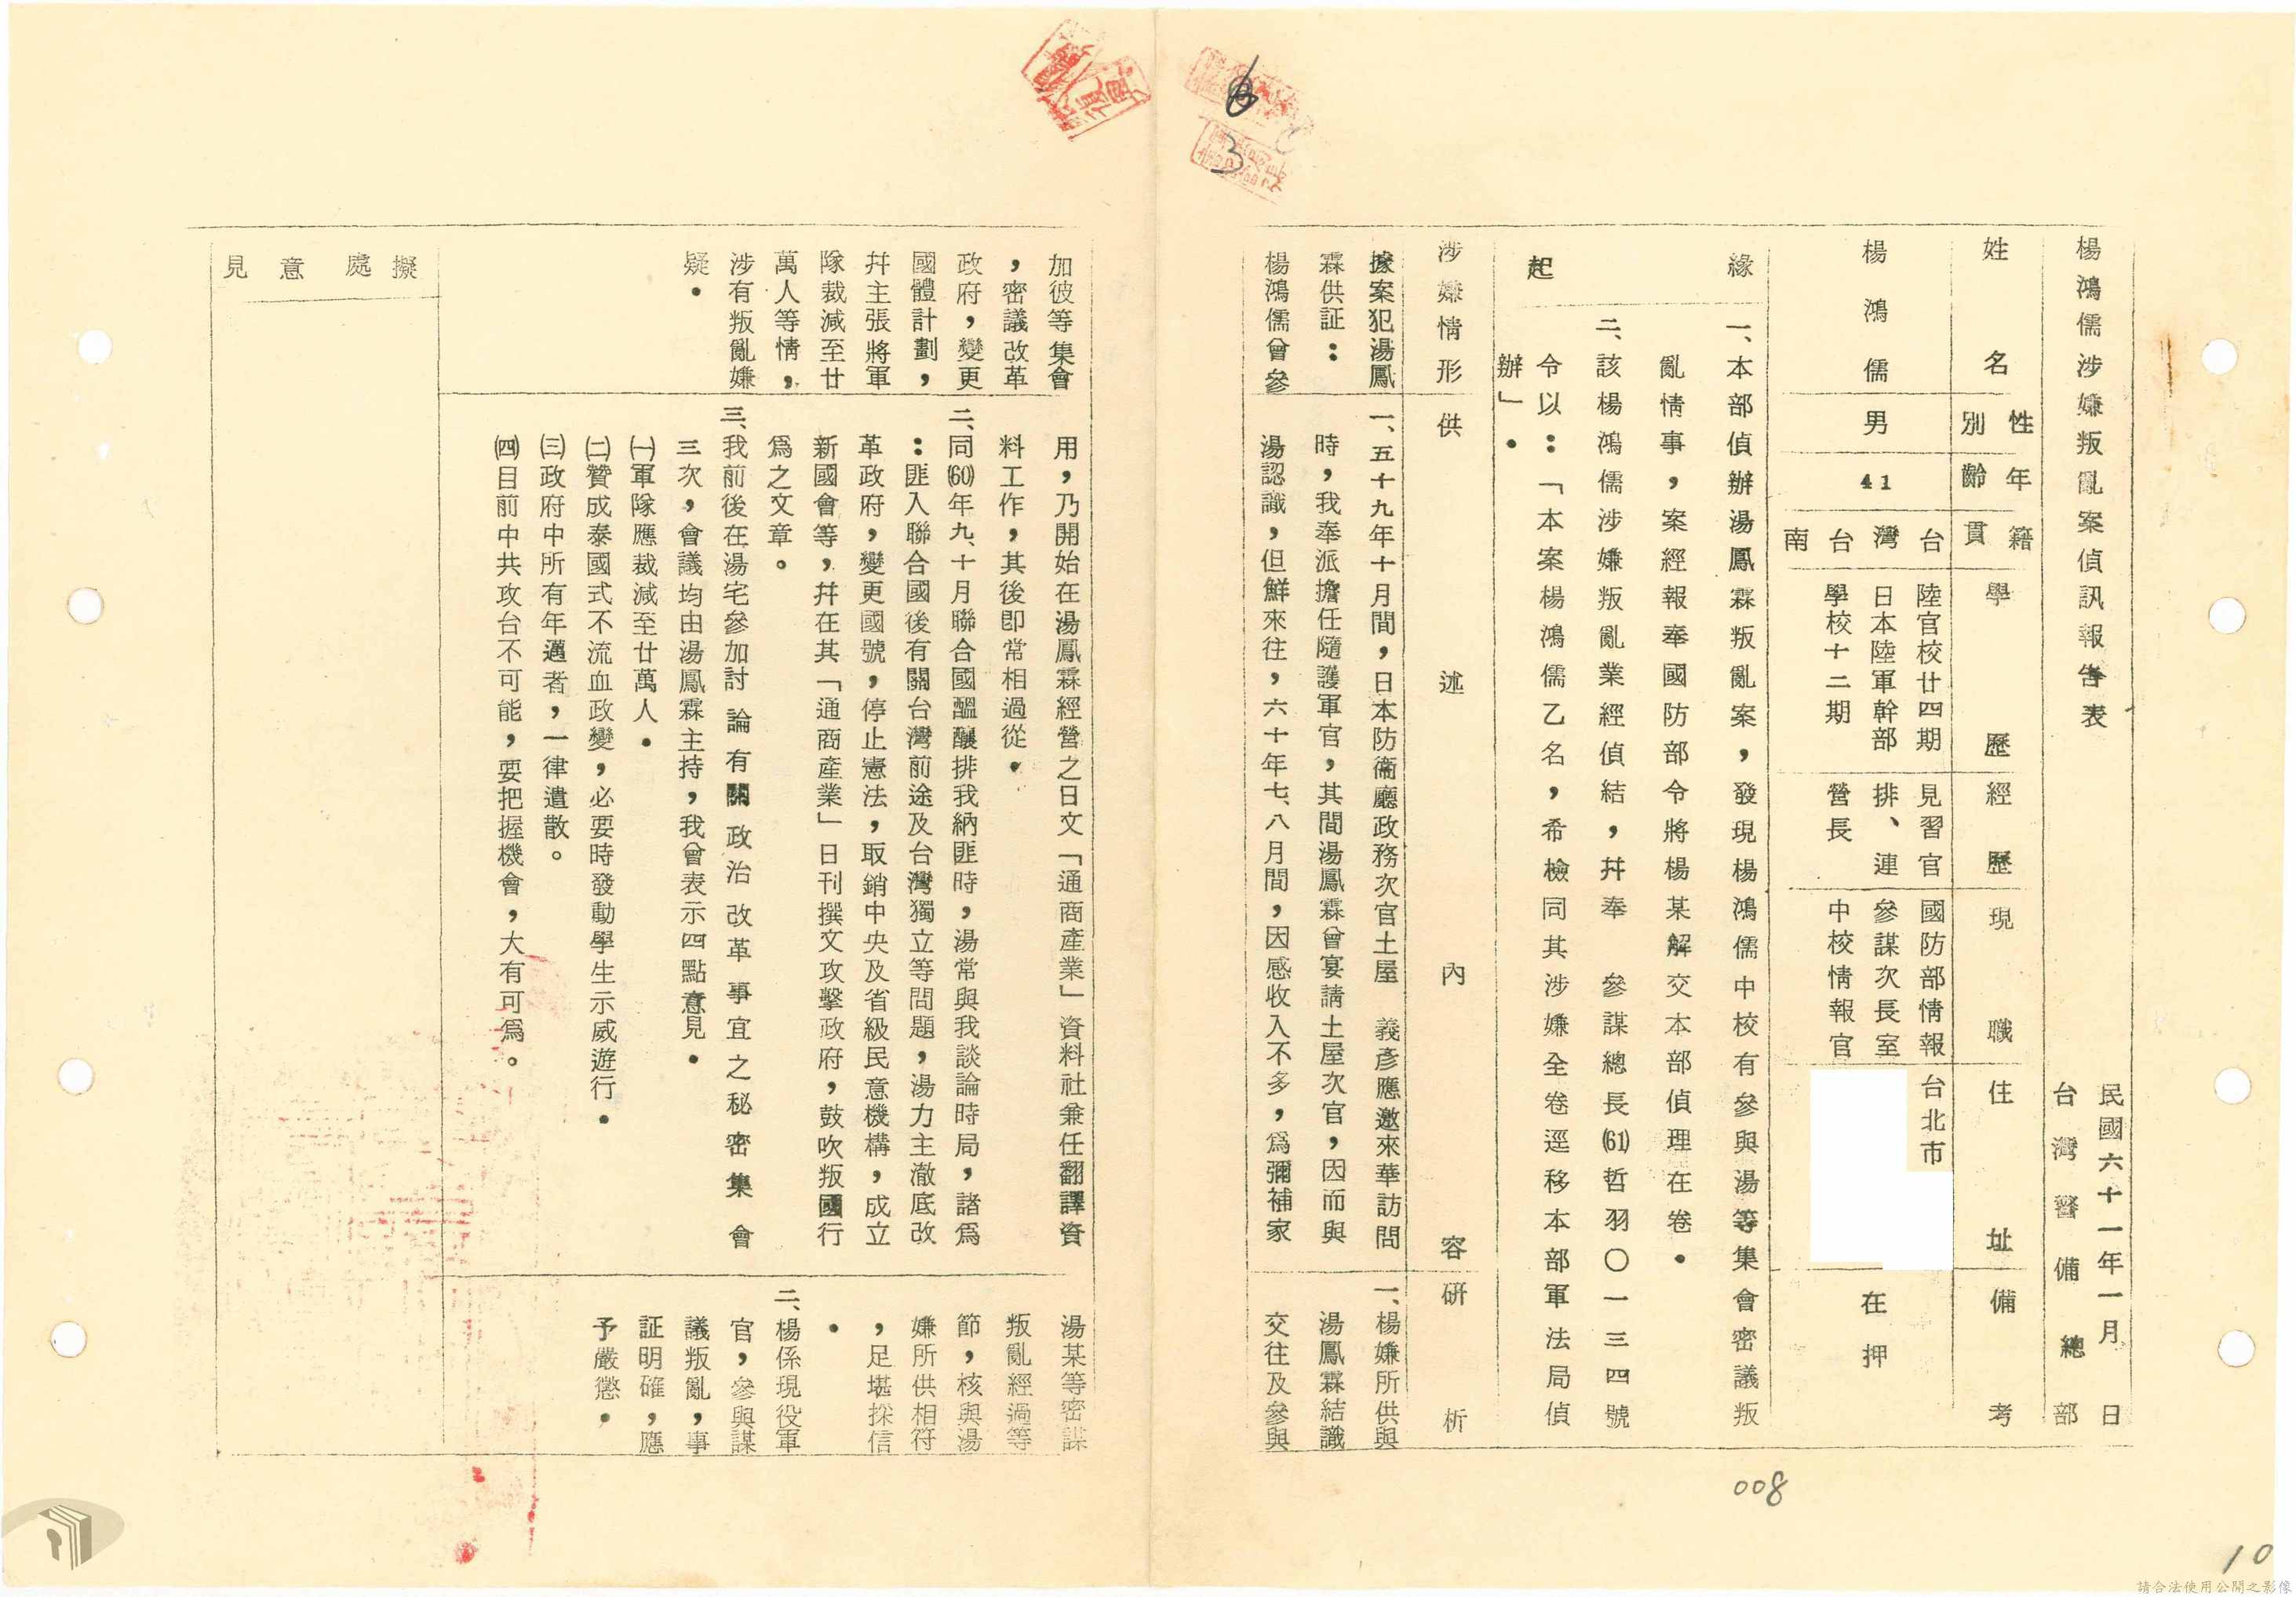 楊鴻儒涉嫌叛亂案偵訊報告表
民國六十一年一月　日
台灣警備總部
姓名
性別
年齡
籍貫
學歷
經歷
現職
住址
備考
楊鴻儒
男
41
台灣台南
陸官校廿四期
日本陸軍幹部
學校十二期
見習官
排、連
營長
國防部情報
參謀次長室
中校情報官
台北市
在押
緣起
一、本部偵辦湯鳳霖叛亂案，發現楊鴻儒中校有參與湯等集會密議叛
亂情事，案經報奉國防部令將楊某解交本部偵理在卷。
二、該楊鴻儒涉嫌叛亂業經偵結，幷奉　參謀總長(61)哲羽〇一三四號
令以：「本案楊鴻儒乙名，希檢同其涉嫌全卷逕移本部軍法局偵
辦」。
涉嫌情形
供述內容
研析
據案犯湯鳳
霖供証：
楊鴻儒曾參
加彼等集會
，密議改革
政府，變更
國體計劃，
幷主張將軍
隊裁減至廿
萬人等情，
涉有叛亂嫌
疑。
一、五十九年十月間，日本防衞廳政務次官土屋　義彥應邀來華訪問
時，我奉派擔任隨護軍官，其間湯鳳霖曾宴請土屋次官，因而與
湯認識，但鮮來往，六十年七、八月間，因感收入不多，爲彌補家
用，乃開始在湯鳳霖經營之日文「通商產業」資料社兼任翻譯資
料工作，其後即常相過從。
二、同(60)年九、十月聯合國醞釀排我納匪時，湯常與我談論時局，諸爲
：匪入聯合國後有關台灣前途及台灣獨立等問題，湯力主澈底改
革政府，變更國號，停止憲法，取銷中央及省級民意機構，成立
新國會等，幷在其「通商產業」日刊撰文攻擊政府，鼓吹叛國行
爲之文章。
三、我前後在湯宅參加討論有關政治改革事宜之秘密集會
三次，會議均由湯鳳霖主持，我曾表示四點意見。
㈠軍隊應裁減至廿萬人。
㈡贊成泰國式不流血政變，必要時發動學生示威遊行。
㈢政府中所有年邁者，一律遣散。
㈣目前中共攻台不可能，要把握機會，大有可爲。
一、楊嫌所供與
湯鳳霖結識
交往及參與
湯某等密謀
叛亂經過等
節，核與湯
嫌所供相符
，足堪採信
。
二、楊係現役軍
官，參與謀
議叛亂，事
証明確，應
予嚴懲。
擬處意見
6
3
008
10
請合法使用公開之影像